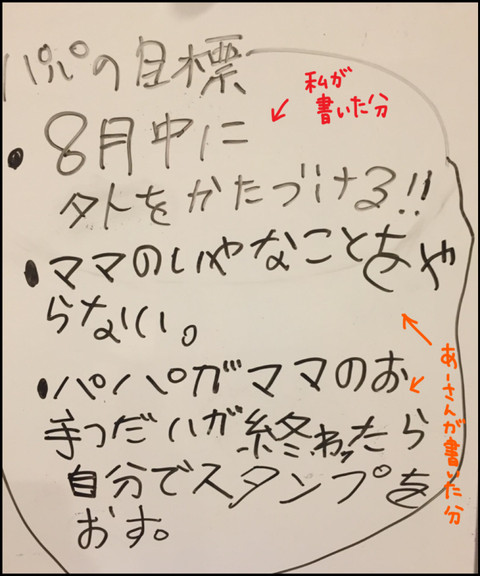 パパの目標
私が
書いた分
・8月中に
外をかたづける!!
・ママのいやなことをや
らない。
・パパがママのお
手つだいが終わったら
自分でスタンプを
おす。
あーさんが書いた分